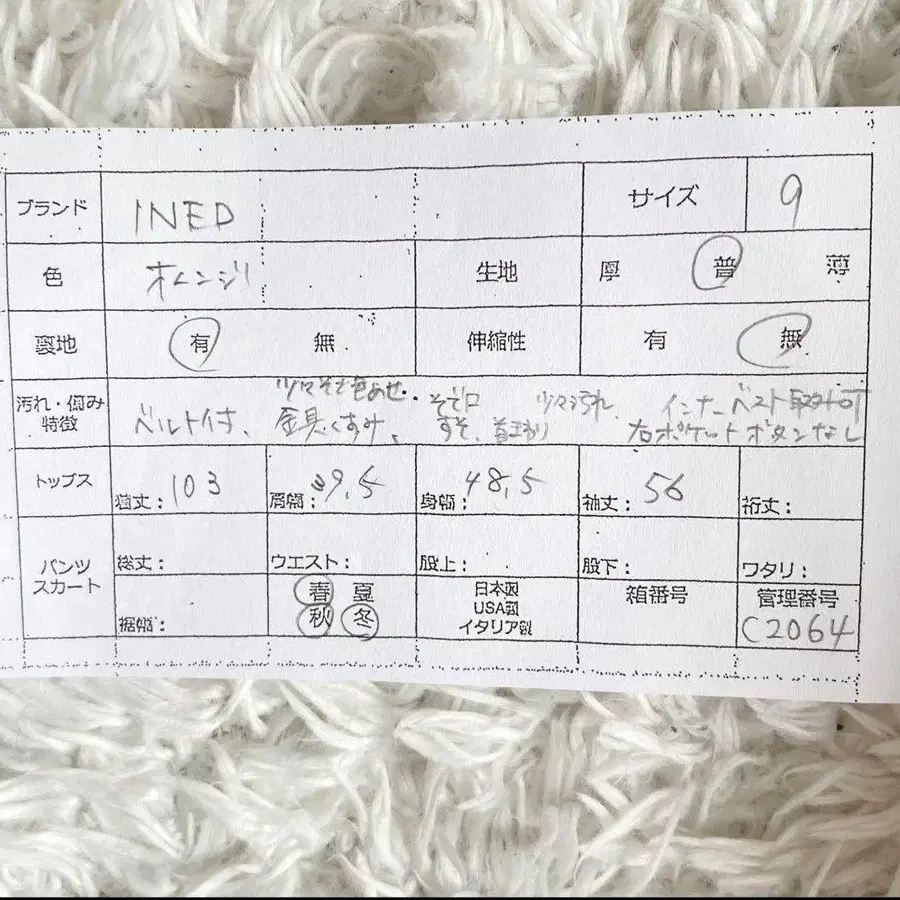 ブランド INED サイズ 9
色 オレンジ 生地 厚 普 薄
裏地 有 無 伸縮性 有 無
汚れ・傷み 少々そで色あせ・そで口 少々汚れ、 インナーベスト取外可
特徴 ベルト付、金具くすみ、すそ、首まわり 右ポケットボタンなし
トップス 着丈：103 肩幅：39,5 身幅：48,5 袖丈：56 裄丈：
パンツ 総丈： ウエスト： 股上： 股下： ワタリ：
スカート 裾幅： 春 夏 日本製 箱番号 管理番号
秋 冬 USA製 C2064
イタリア製